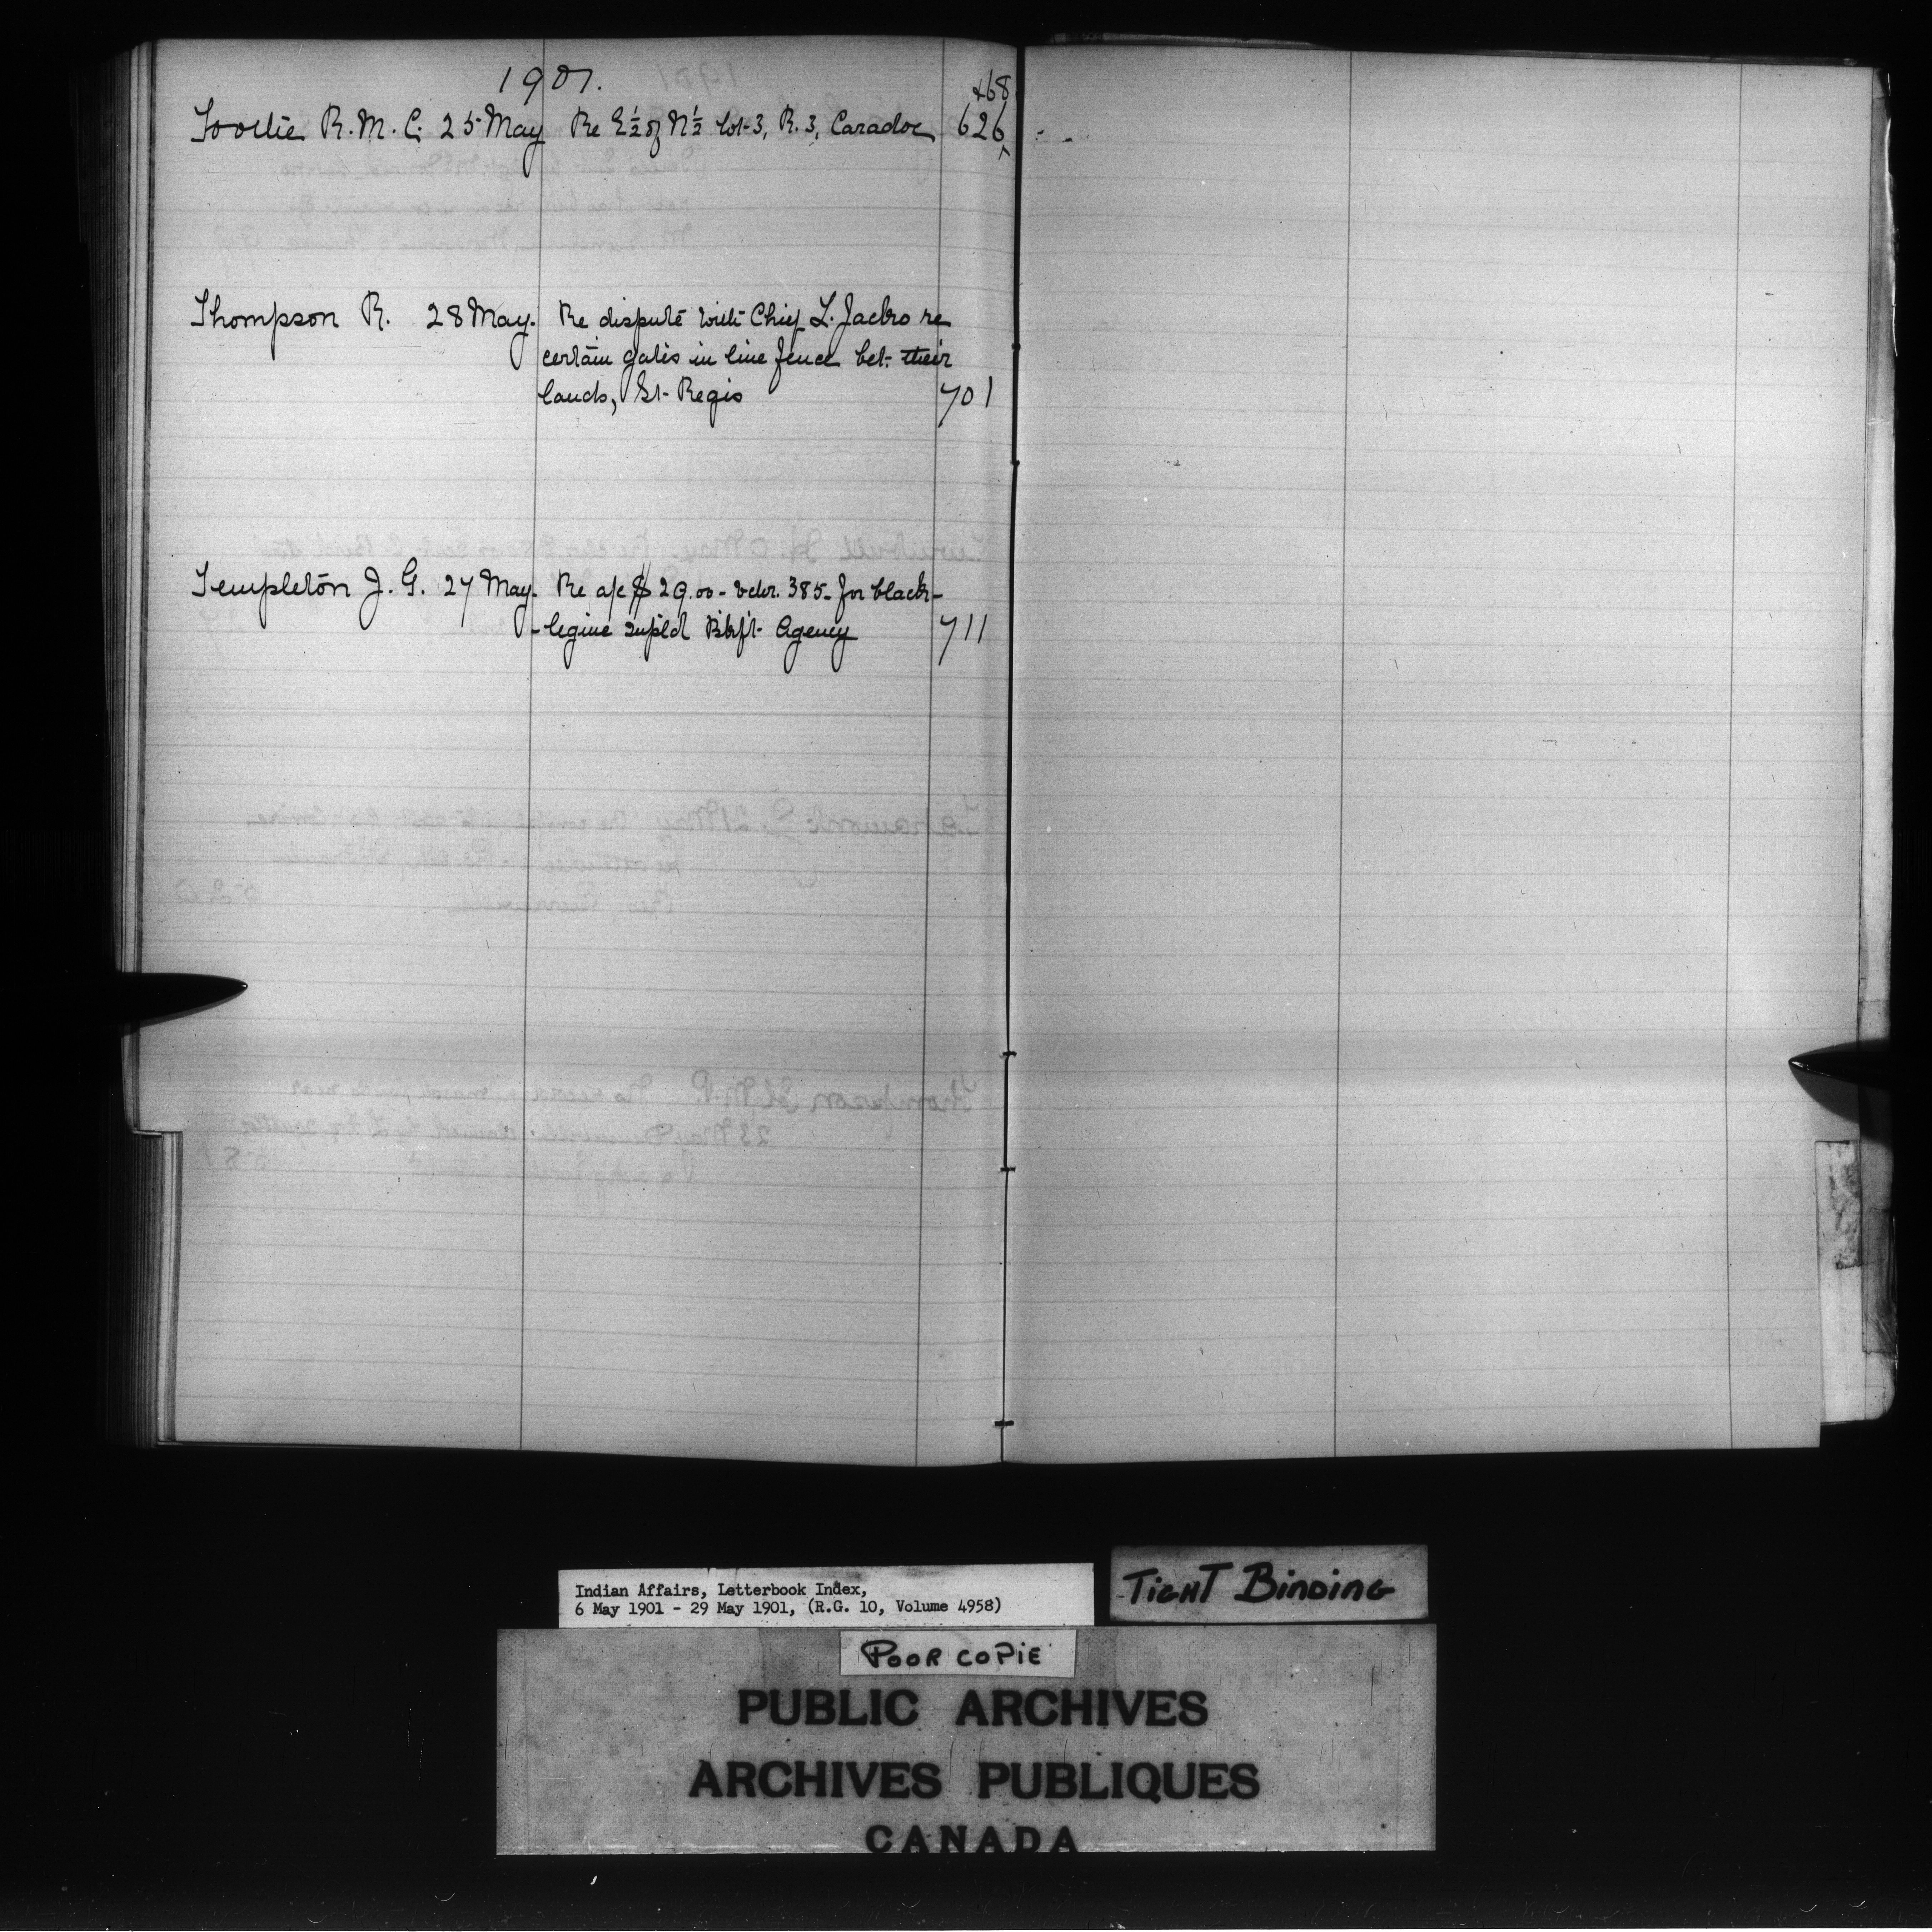 1901.
468
Toothe R. M. C. 25 May Re E½ of N½ Lot 3, R. 3, Caradoc 626
Thompson R. 28 May. Re dispute with Chief L. Jacko re
certain gates in line fence bet. their
lands, St. Regis 701
Templeton J. G. 27 May. Re a/c $29.00 - vchr. 385 - for black-
-legine supld Bkft. Agency 711
Indian Affairs, Letterbook Index,
6 May 1901 - 29 May 1901, (R.G. 10, Volume 4958)
TIGHT BINDING
POOR COPIE
PUBLIC ARCHIVES
ARCHIVES PUBLIQUES
CANADA